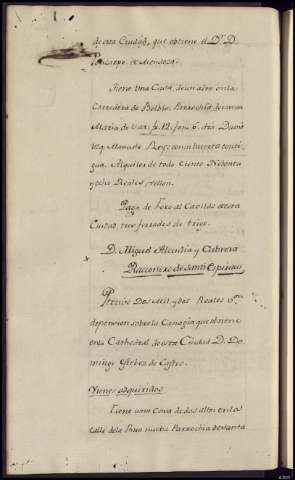 de esta Ciudad, que obtiene el Dn. D.
de Mendoza.
Tiene una Casa de un alto en la
Parrochia de
Maria de
Manuela Rey con
Alquiler de todo Ciento Nobenta
y ocho Reales Vellon.
Paga de Foro al Cavildo de esta
Ciudad tres ferrados de trigo.
D. Miguel Alcudia y Cabrera
Racionero de Santi Espiritu
Percive Dos Mil, y dos Reales Von.
de pension sobre la Canogia que obtiene
en la Cathedral de esta Ciudad D. Do
mingo de Castro.
Vienes adquiridos
Tiene una Casa de dos altos en la
Calle de la Rua nueba Parrochia de Santa